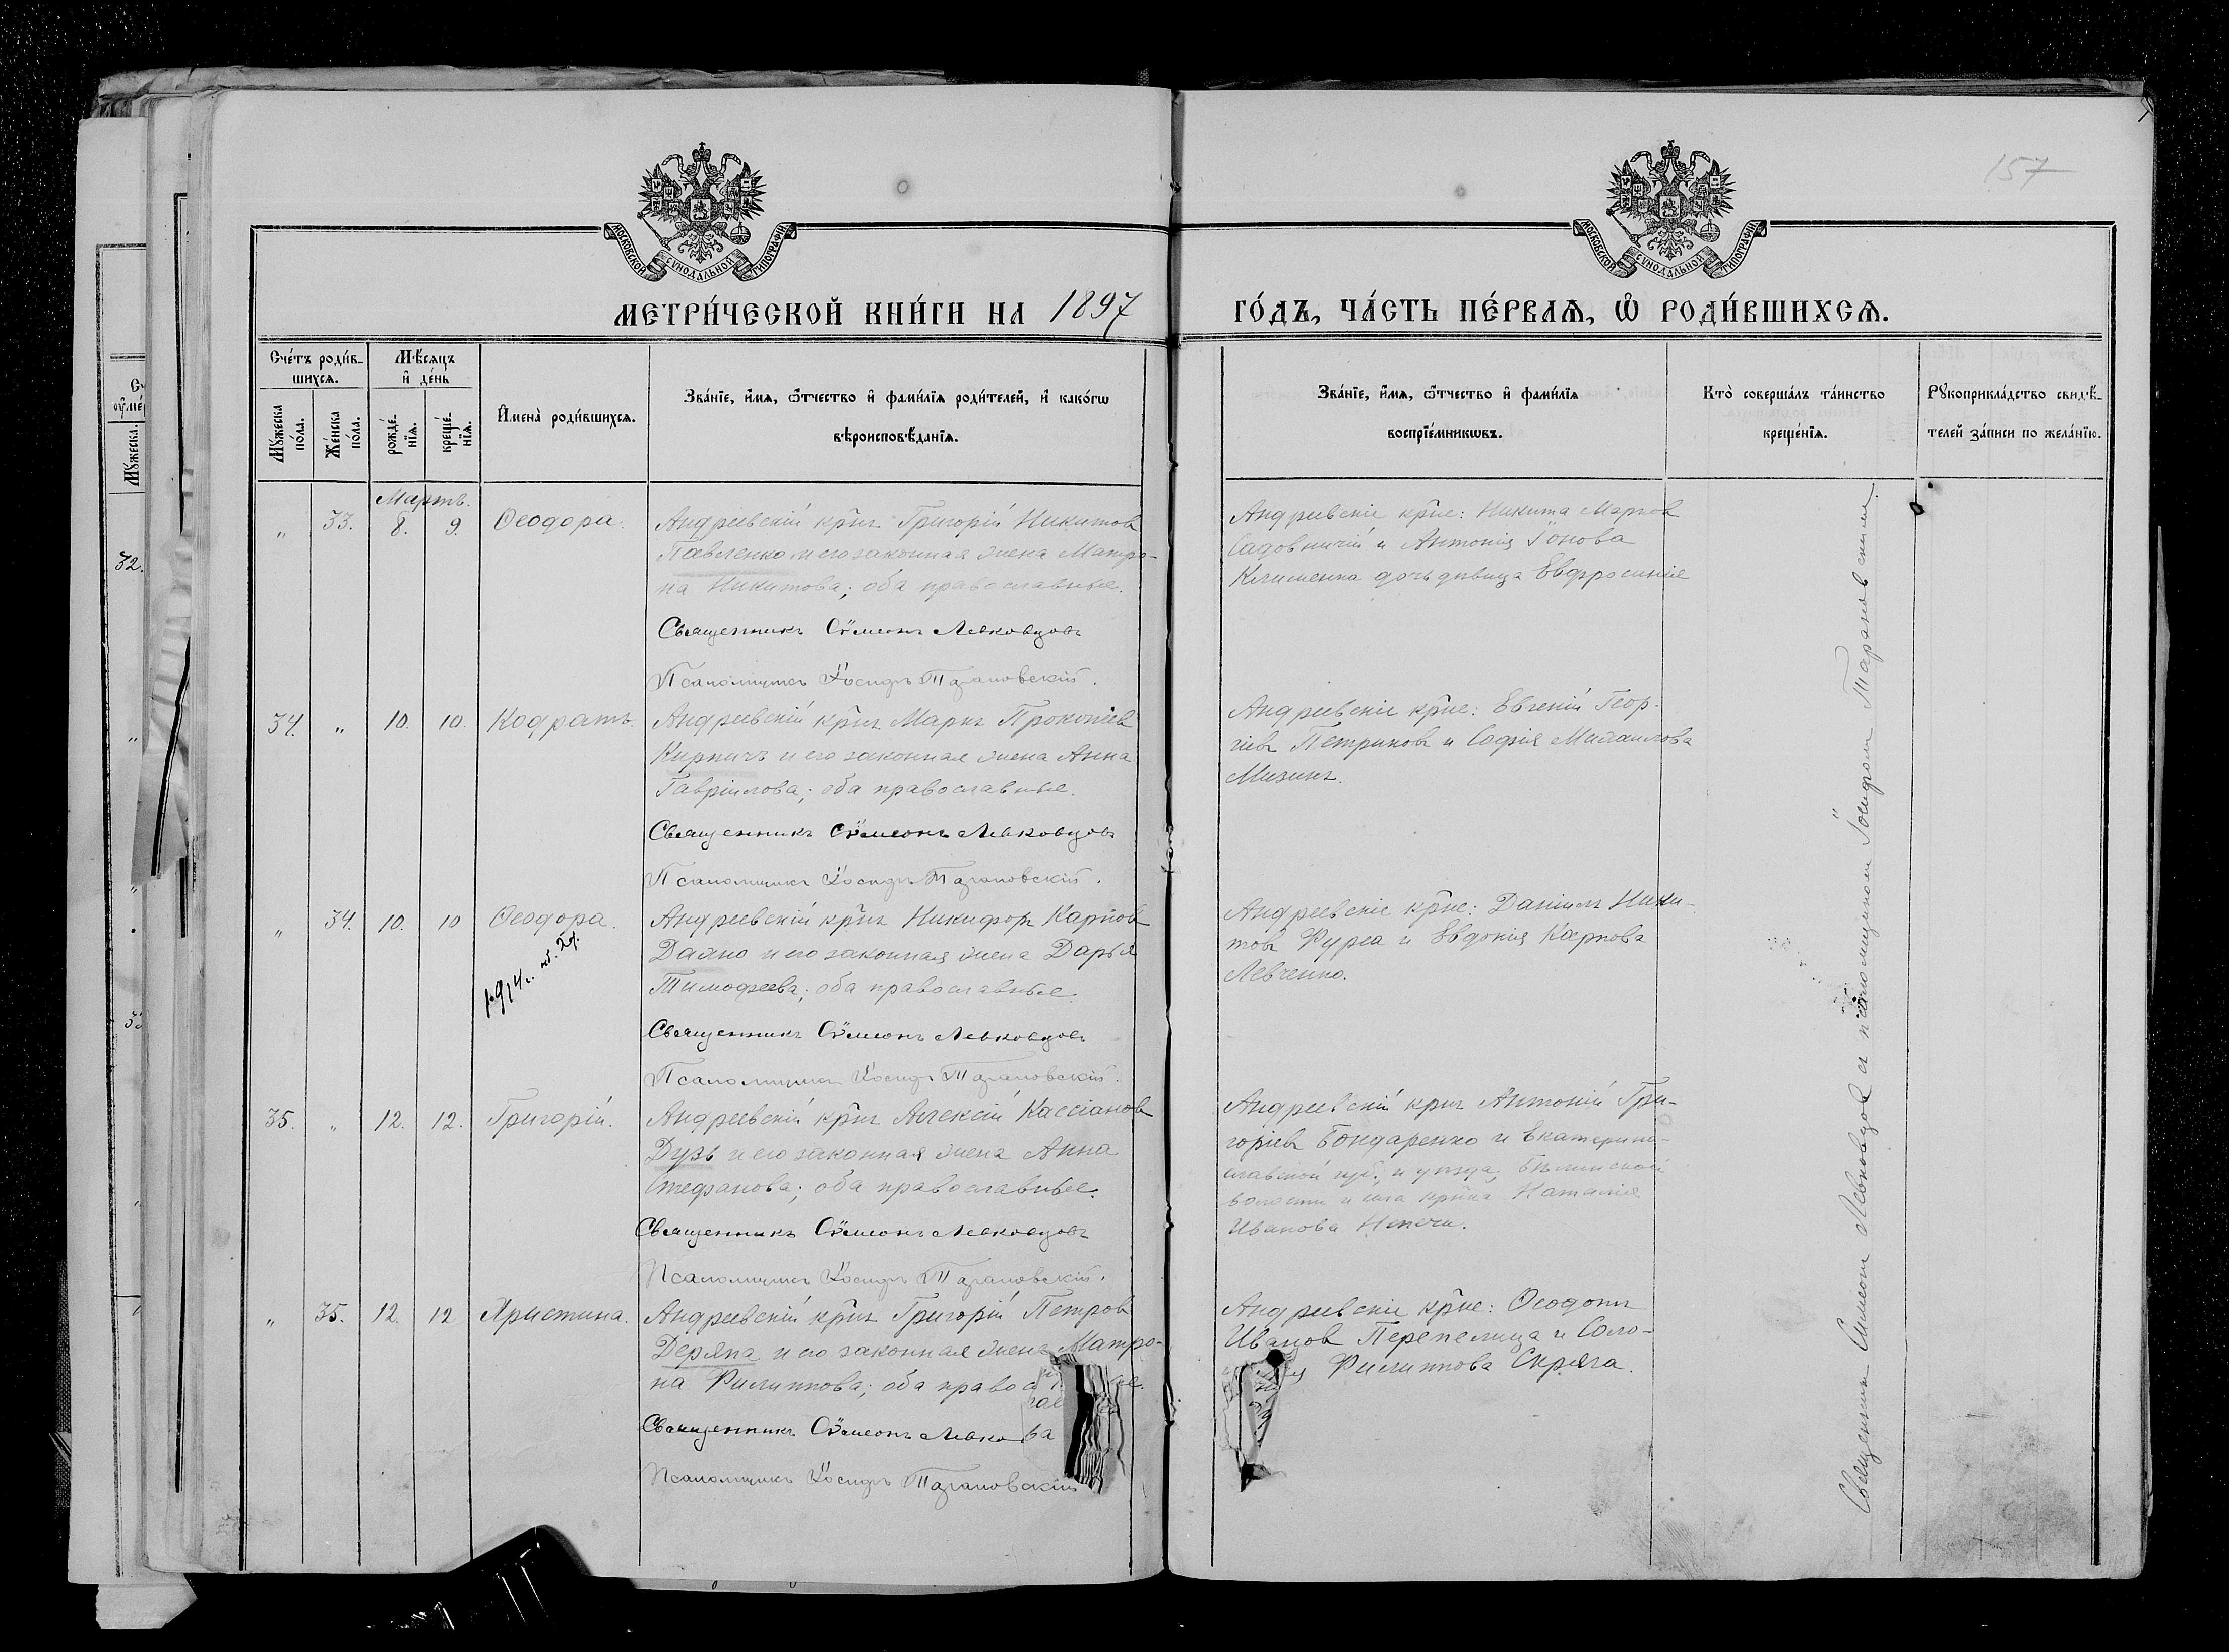 157
МОСКОВСКОЙ СУНОДАЛЬНОЙ ТИПОГРАФІИ
МОСКОВСКОЙ СУНОДАЛЬНОЙ ТИПОГРАФІИ
МЕТРИ́ЧЕСКОЙ КНИ́ГИ НА 1897
ГО́ДЪ, ЧА́СТЬ ПЕ́РВАѦ, Ѿ РОДИ́ВШИХСѦ.
Сче́тъ роди́в-
шихсѧ.
Мꙋжеска
по́ла.
Же́нска
по́ла.
Мѣсѧцъ
и де́нь
рожде́-
нїѧ.
креще́-
нїѧ.
Имена̀ роди́вшихсѧ.
Зва́нїе, и́мѧ, ѻ҆́тчество и фами́лїѧ роди́телей, и како́гѡ
вѣроисповѣ́данїѧ.
Зва́нїе, и́мѧ, ѻ҆́тчество и фами́лїѧ
воспрїе́мникѡвъ.
Кто̀ соверша́лъ та́инство
креще́нїѧ.
Рꙋкоприкла́дство свидѣ́-
телей за́писи по жела́нїю.
Мартъ.
„ 33. 8. 9. Ѳеодора.
Андреевскій кр̃нъ Григорій Никитовъ
Павленко и его законная жена Матро-
на Никитова; оба православные.
Священникъ Сѵмеонъ Левковцовъ
Псаломщикъ Іосифъ Тарановскій.
Андреевскіе кр̃не: Никита Марков
Садовничій и Антонія Іонова
Клименка дочь дѣвица Евфросинія
34. „ 10. 10. Кодратъ.
Андреевскій кр̃нъ Маркъ Прокопіевъ
Кирпичъ и его законная жена Анна
Гавріилова; оба православные.
Священникъ Сѵмеонъ Левковцовъ
Псаломщикъ Іосифъ Тарановскій.
Андреевскіе кр̃не: Евгеній Геор-
гіевъ Петриковъ и Софія Михаилова
Мизинъ.
„ 34. 10. 10 Ѳеодора.
1914 г.
Андреевскій кр̃нъ Никифоръ Карповъ
Дахно и его законная жена Дарья
Тимофеева; оба православные.
Священникъ Сѵмеонъ Левковцовъ
Псаломщикъ Іосифъ Тарановскій.
Андреевскіе кр̃не: Даніилъ Ники-
товъ Фурса и Евдокія Карпова
Левченко.
35. „ 12. 12. Григорій.
Андреевскій кр̃нъ Алексій Кассіановъ
Дузь и его законная жена Анна
Стефанова; оба православные.
Священникъ Сѵмеонъ Левковцовъ
Псаломщикъ Іосифъ Тарановскій.
Андреевскій кр̃нъ Антоній Гри-
горіевъ Бондаренко и Екатерино-
славской губ. и уѣзда,
волости и села кр̃нка Наталія
Иванова
„ 35. 12. 12 Христина.
Андреевскій кр̃нъ Григорій Петровъ
Деряпа и его законная жена Матро-
на Филиппова; оба правос
Священникъ Сѵмеонъ Левко
Псаломщикъ Іосифъ Тарановскій
Андреевскіе кр̃не: Ѳеодотъ
Ивановъ Перепелица и Соло-
Филиппова Скряга.
Священникъ Симеонъ Левковцовъ съ псаломщикомъ Іосифомъ Тарановскимъ.
Мꙋжеска.
32.